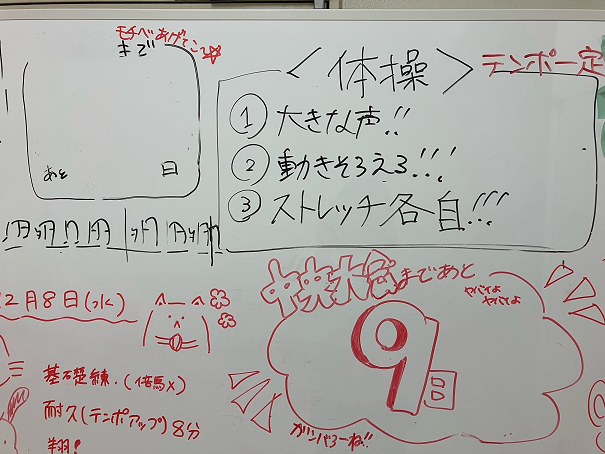 モチベあげてこ☆
まで
あと 日
<体操>
テンポ一定
① 大きな声!!
② 動きそろえる!!!
③ ストレッチ各自!!!
2月8日(水)
中央大会まであと
ヤバイよ
ヤバイよ
9日
ガンバろーね!!
基礎練.(倍馬×)
耐久(テンポアップ)8分
翔!